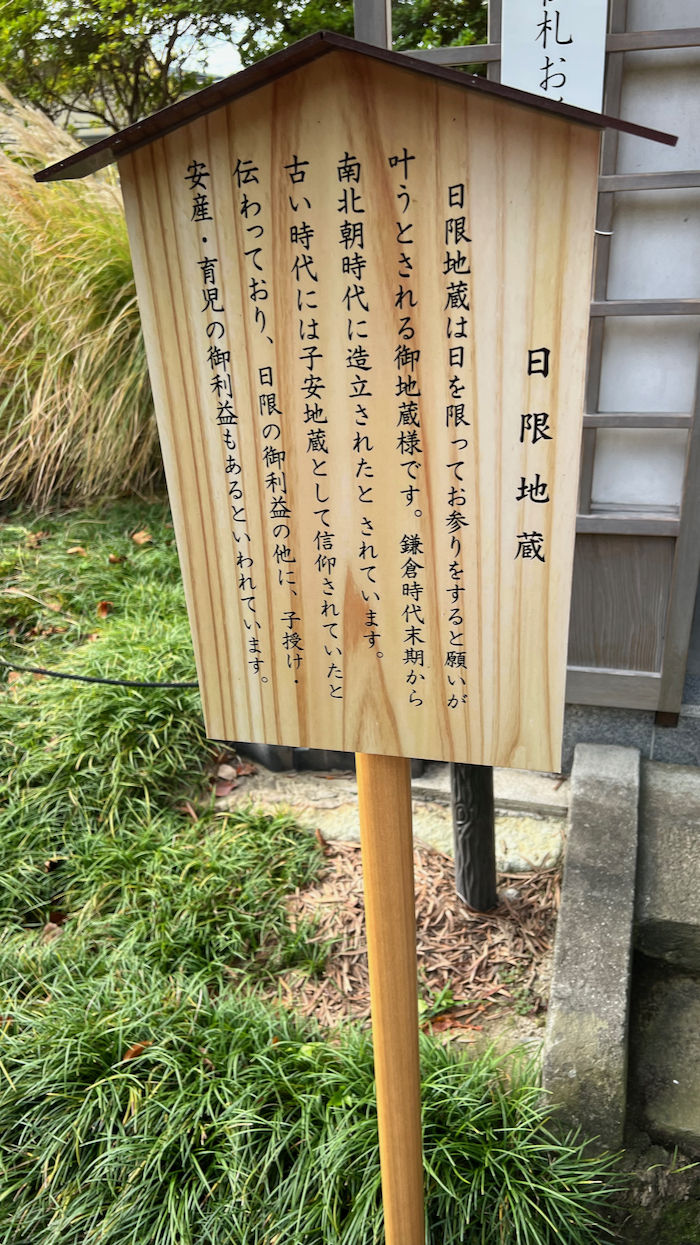 札お
日限地蔵
日限地蔵は日を限ってお参りをすると願いが
叶うとされる御地蔵様です。鎌倉時代末期から
南北朝時代に造立されたと されています。
古い時代には子安地蔵として信仰されていたと
伝わっており、日限の御利益の他に、子授け・
安産・育児の御利益もあるといわれています。